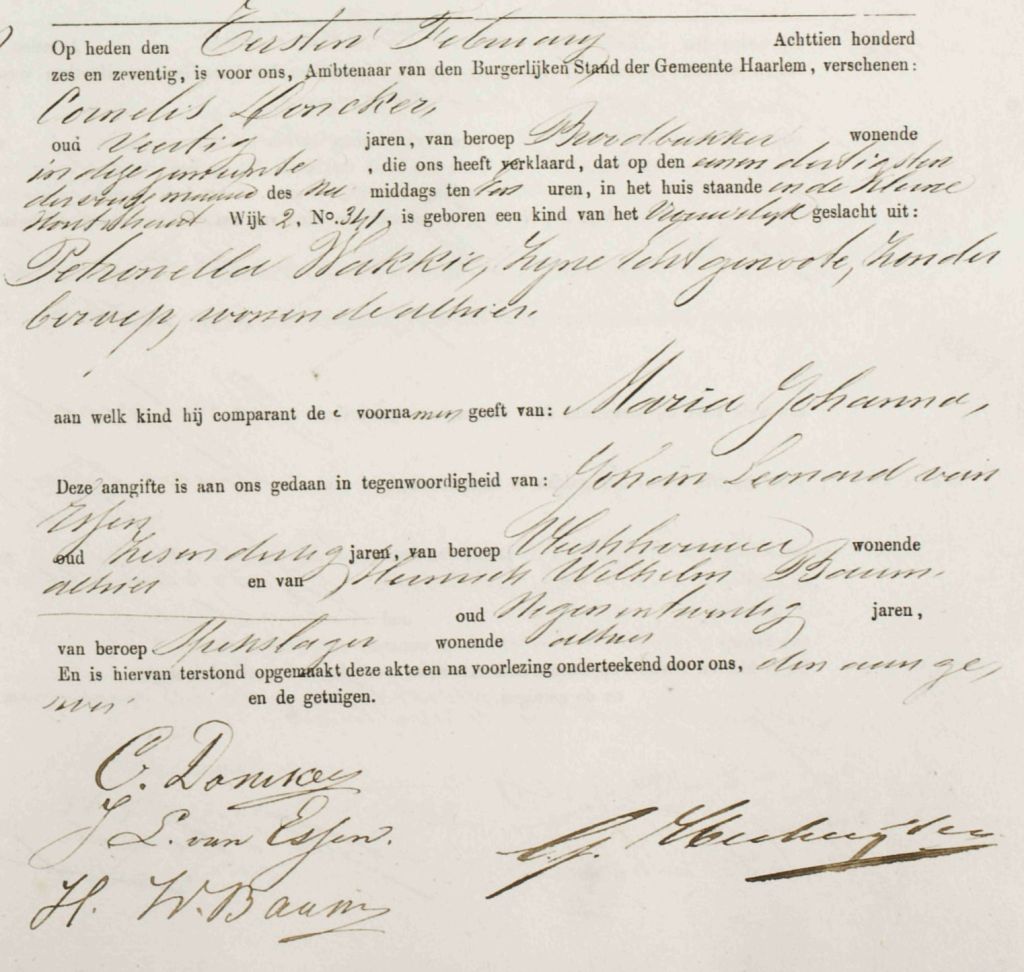 Op heden den Eersten February Achttien honderd
zes en zeventig, is voor ons, Ambtenaar van den Burgerlijken Stand der Gemeente Haarlem, verschenen:
Cornelis Doncker,
oud Veertig jaren, van beroep Broodbakker wonende
in deze gemeente, die ons heeft verklaard, dat op den eenen dertigsten
der vorige maand des na middags ten tien uren, in het huis staande in de Kleine
Houtstraat Wijk 2, No. 341, is geboren een kind van het Vrouwelijk geslacht uit:
Petronella Wakkie, zyne Echtgenoote, zonder
beroep, wonende alhier.
aan welk kind hij comparant de e voornamen geeft van: Maria Johanna,
Deze aangifte is aan ons gedaan in tegenwoordigheid van: Johan Leonard van
Essen
oud zes en dertig jaren, van beroep Vleeschhouwer wonende
alhier en van Heinrich Wilhelm Baum
oud Negen en twintig jaren,
van beroep Spekslager wonende alhier
En is hiervan terstond opgemaakt deze akte en na voorlezing onderteekend door ons, den aange,
ver en de getuigen.
C. Doncker
J L. van Essen.
H. W. Baum